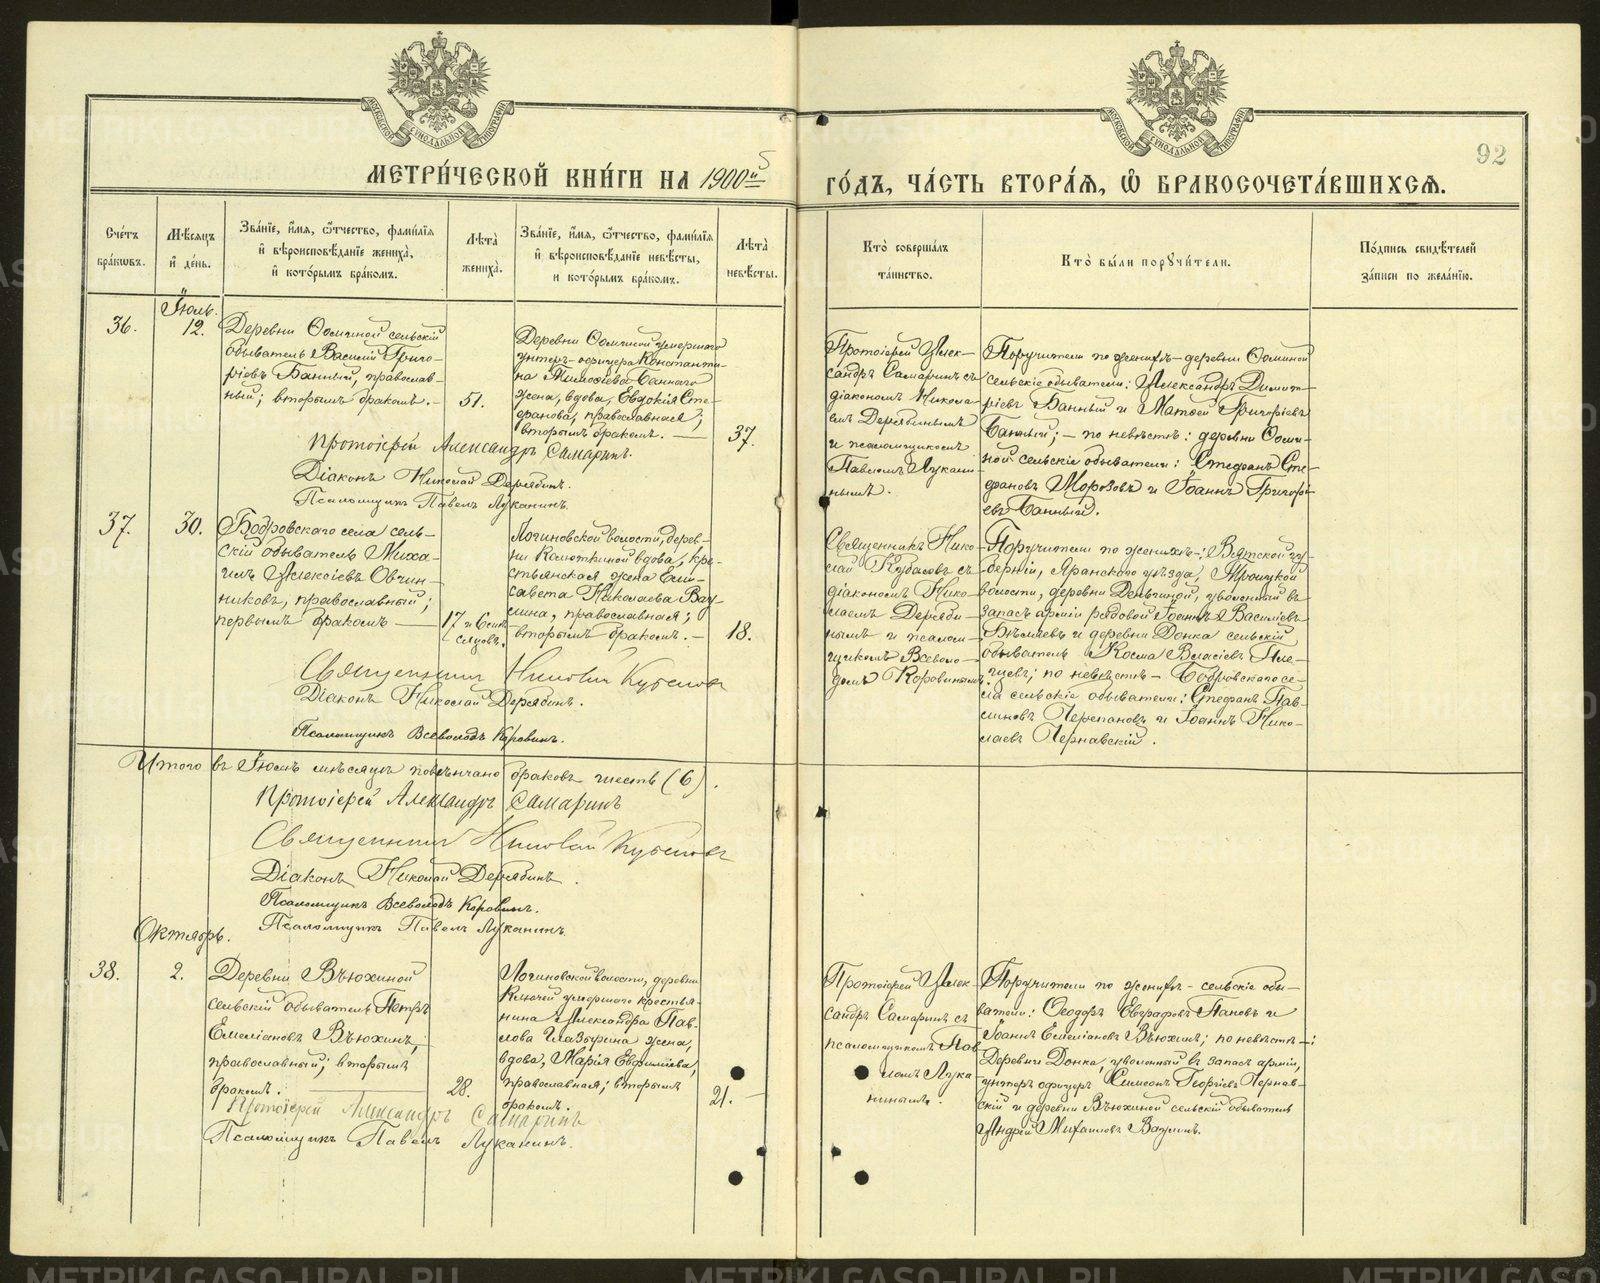 МОСКОВСКОЙ СѴНОДАЛЬНОЙ ТИПОГРАФІИ
МОСКОВСКОЙ СѴНОДАЛЬНОЙ ТИПОГРАФІИ
92
МЕТРИ́ЧЕСКОЙ КНИ́ГИ НА 1900й 5
ГО́ДЪ, ЧА́СТЬ ВТОРА́Я, Ѡ БРАКОСОЧЕТА́ВШИХСЯ.
Сче́тъ
бра́ковъ.
Мѣ́сяцъ
и де́нь.
Зва́ніе, и́мя, ѻ́тчество, фами́лія
и вѣроисповѣ́даніе жениха̀,
и кото́рымъ бра́комъ.
Лѣ́та
жениха̀.
Зва́ніе, и́мя, ѻ́тчество, фами́лія
и вѣроисповѣ́даніе невѣ́сты,
и кото́рымъ бра́комъ.
Лѣ́та
невѣ́сты.
Кто̀ соверша́лъ
та́инство.
Кто̀ бы́ли порꙋчи́тели.
По́дпись свидѣ́телей
за́писи по жела́нію.
Іюль.
36.
12.
Деревни Ѳоминой сельскій
обыватель Василій Григо-
ріевъ Банный, православ-
ный; вторымъ бракомъ.
51.
Деревни Ѳоминой умершаго
унтеръ-офицера Константи-
на Тимоѳіева Баннаго
жена, вдова, Евдокія Сте-
фанова, православная;
вторымъ бракомъ.
37.
Протоіерей Алек-
сандръ Самаринъ съ
діакономъ Никола-
емъ Дерябинымъ
и псаломщикомъ
Павломъ Лукани-
нымъ.
Поручители по женихѣ - деревни Ѳоминой
сельскіе обыватели: Александръ Димит-
ріевъ Банный и Матѳей Григоріевъ
Банный; - по невѣстѣ: деревни Ѳоми-
ной сельскіе обыватели: Стефанъ Сте-
фановъ Морозовъ и Іоаннъ Григорі-
евъ Банный.
Протоіерей Александръ Самаринъ.
Діаконъ Николай Дерябинъ.
Псаломщикъ Павелъ Луканинъ.
37.
30.
Бобровскаго села сель-
скій обыватель Миха-
илъ Алексіевъ Овчин-
никовъ, православный;
первымъ бракомъ
17 и 6 мѣ-
сяцовъ.
Логиновской волости, дерев-
ни Колюткиной вдова, кре-
стьянская жена Ели-
савета Николаева Вау-
лина, православная;
вторымъ бракомъ.
18.
Священникъ Нико-
лай Кубасовъ съ
діакономъ Нико-
лаемъ Деряби-
нымъ и псалом-
щикомъ Всеволо-
домъ Коровинымъ.
Поручители по женихѣ: Вятской гу-
берніи, Яранскаго уѣзда, Троицкой
волости, деревни уволенный въ
запасъ арміи рядовой Іоаннъ Василіевъ
и деревни Донка сельскій
обыватель Косма Власіевъ Пле-
щевъ; по невѣстѣ - Бобровскаго се-
ла сельскіе обыватели: Стефанъ Пав-
линовъ Черепановъ и Іоаннъ Нико-
лаевъ Чернавскій.
Священникъ Николай Кубасовъ
Діаконъ Николай Дерябинъ.
Псаломщикъ Всеволодъ Коровинъ.
Итого въ Іюлѣ мѣсяцѣ повѣнчано браковъ шесть (6).
Протоіерей Александръ Самаринъ
Священникъ Николай Кубасовъ
Діаконъ Николай Дерябинъ.
Псаломщикъ Всеволодъ Коровинъ.
Псаломщикъ Павелъ Луканинъ.
Октябрь.
38.
2.
Деревни Вьюхиной
сельскій обыватель Петръ
Емеліановъ Вьюхинъ,
православный; вторымъ
бракомъ.
28.
Логиновской волости, деревни
Ключей умершаго крестья-
нина Александра Пав-
лова Глазырина жена,
вдова, Марія Евфиміева,
православная; вторымъ
бракомъ.
21.
Протоіерей Алек-
сандръ Самаринъ съ
псаломщикомъ Пав-
ломъ Лука-
нинымъ.
Поручители по женихѣ - сельскіе обы-
ватели: Ѳеодоръ Евграфовъ Пановъ и
Іоаннъ Емеліановъ Вьюхинъ; по невѣстѣ -:
Деревни Донка, уволенный въ запасъ арміи,
унтеръ офицеръ Симеонъ Георгіевъ Чернав-
скій и деревни Вьюхиной сельскій обыватель
Андрей Михаиловъ Ваулинъ.
Протоіерей Александръ Самаринъ
Псаломщикъ Павелъ Луканинъ.
METRIKI.GASO-URAL.RU